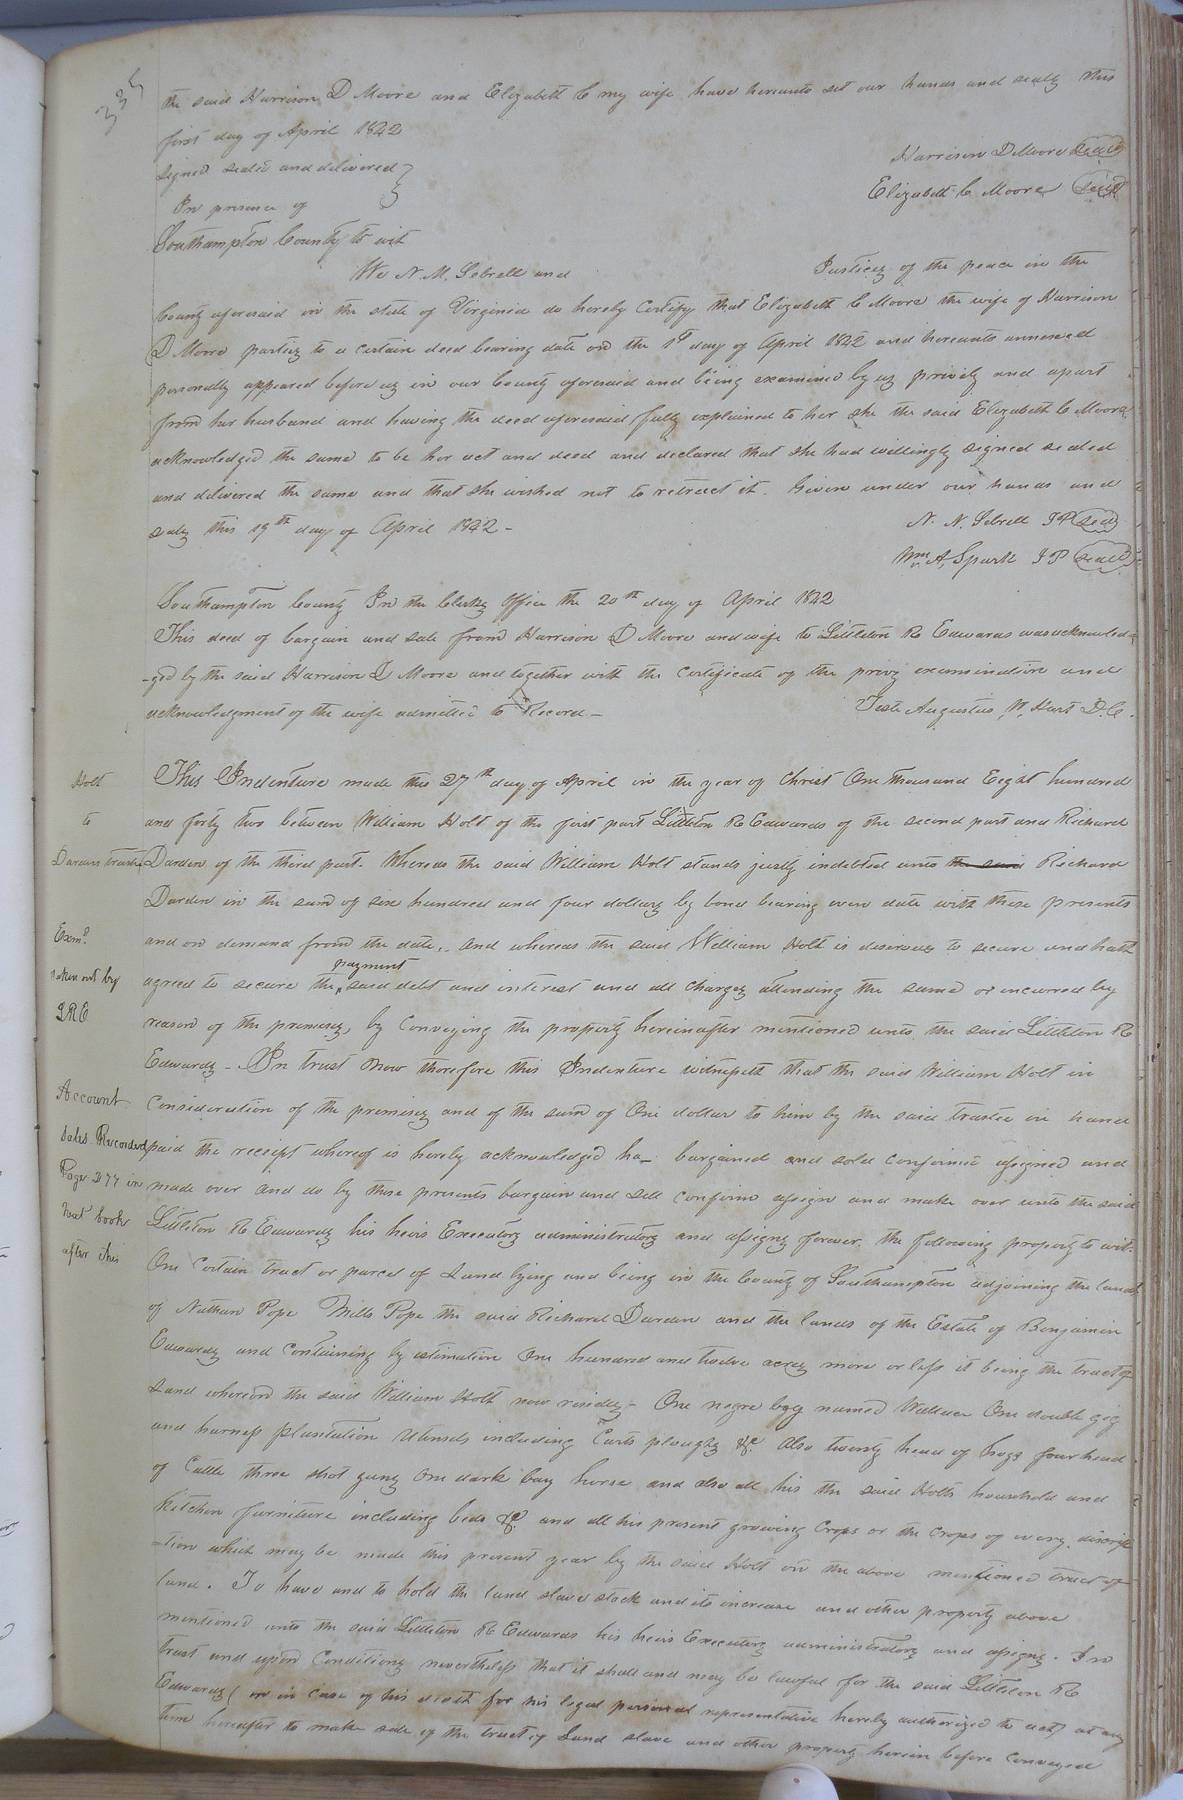 335
the said Harrison D Moore and Elizabeth C my wife have hereunto set our hands and seals this
first day of April 1842
Signed sealed and delivered
In presence of
Harrison D Moore Seal
Elizabeth C Moore Seal
Southampton County to wit
We N. M. Sebrell and Justices of the peace in the
County aforesaid in the state of Virginia do hereby Certify that Elizabeth C Moore the wife of Harrison
D Moore parties to a certain deed bearing date on the 1st day of April 1842 and hereunto annexed
personally appeared before us in our County aforesaid and being examined by us privily and apart
from her husband and having the deed aforesaid fully explained to her she the said Elizabeth C Moore
acknowledged the same to be her act and deed and declared that she had willingly signed sealed
and delivered the same and that she wished not to retract it. Given under our hands and
seals this 19th day of April 1842 -
N. N. Sebrell JP Seal
Wm A. Spark JP Seal
Southampton County In the Clerks Office the 20th day of April 1842
This deed of bargain and sale from Harrison D Moore and wife to Littleton R Edwards was acknowled-
-ged by the said Harrison D Moore and together with the Certificate of the privy examination and
acknowledgment of the wife admitted to Record -
Teste Augustus N. Hart D.C.
Holt
to
Dardens trustee
Exmd.
taken out by
LRE
Account
Sales Recorded
Page 277 in
Next book
after this
This Indenture made this 27th day of April in the year of Christ One thousand Eight hundred
and forty two between William Holt of the first part Littleton R Edwards of the second part and Richard
Darden of the third part. Whereas the said William Holt stands justly indebted unto the said Richard
Darden in the sum of six hundred and four dollars by bond bearing even date with these presents
and on demand from the date, and whereas the said William Holt is desirous to secure and hath
agreed to secure the payment said debt and interest and all charges attending the same or incurred by
reason of the premises, by Conveying the property hereinafter mentioned unto the said Littleton R
Edwards - In trust Now therefore this Indenture witnesseth that the said William Holt in
Consideration of the premises and of the sum of One dollar to him by the said trustee in hand
paid the receipt whereof is hereby acknowledged ha_ bargained and sold confirmed assigned and
made over and do by these presents bargain and sell confirm assign and make over unto the said
Littleton R Edwards his heirs Executors administrators and assigns forever, the following property to wit.
One Certain tract or parcel of Land lying and being in the County of Southampton adjoining the lands
of Nathan Pope Mills Pope the said Richard Darden and the lands of the Estate of Benjamin
Edwards and Containing by estimation One hundred and twelve acres more or less it being the tract of
Land whereon the said William Holt now resides - One negro boy named Wallace One double gig
and harness plantation Utensils including Carts ploughs &c. Also twenty head of hogs four head
of Cattle three shot guns One dark bay horse and also all his the said Holts household and
kitchen furniture including beds &c and all his present growing Crops or the Crops of every descrip
-tion which may be made this present year by the said Holt on the above mentioned tract of
land. To have and to hold the land slave stock and its increase and other property above
mentioned unto the said Littleton R Edwards his heirs Executors administrators and assigns. In
trust and upon Conditions nevertheless that it shall and may be lawful for the said Littleton R
Edwards (or in case of his death for his legal personal representative hereby authorized to act) at any
time hereafter to make sale of the tract of Land slave and other property herein before Conveyed